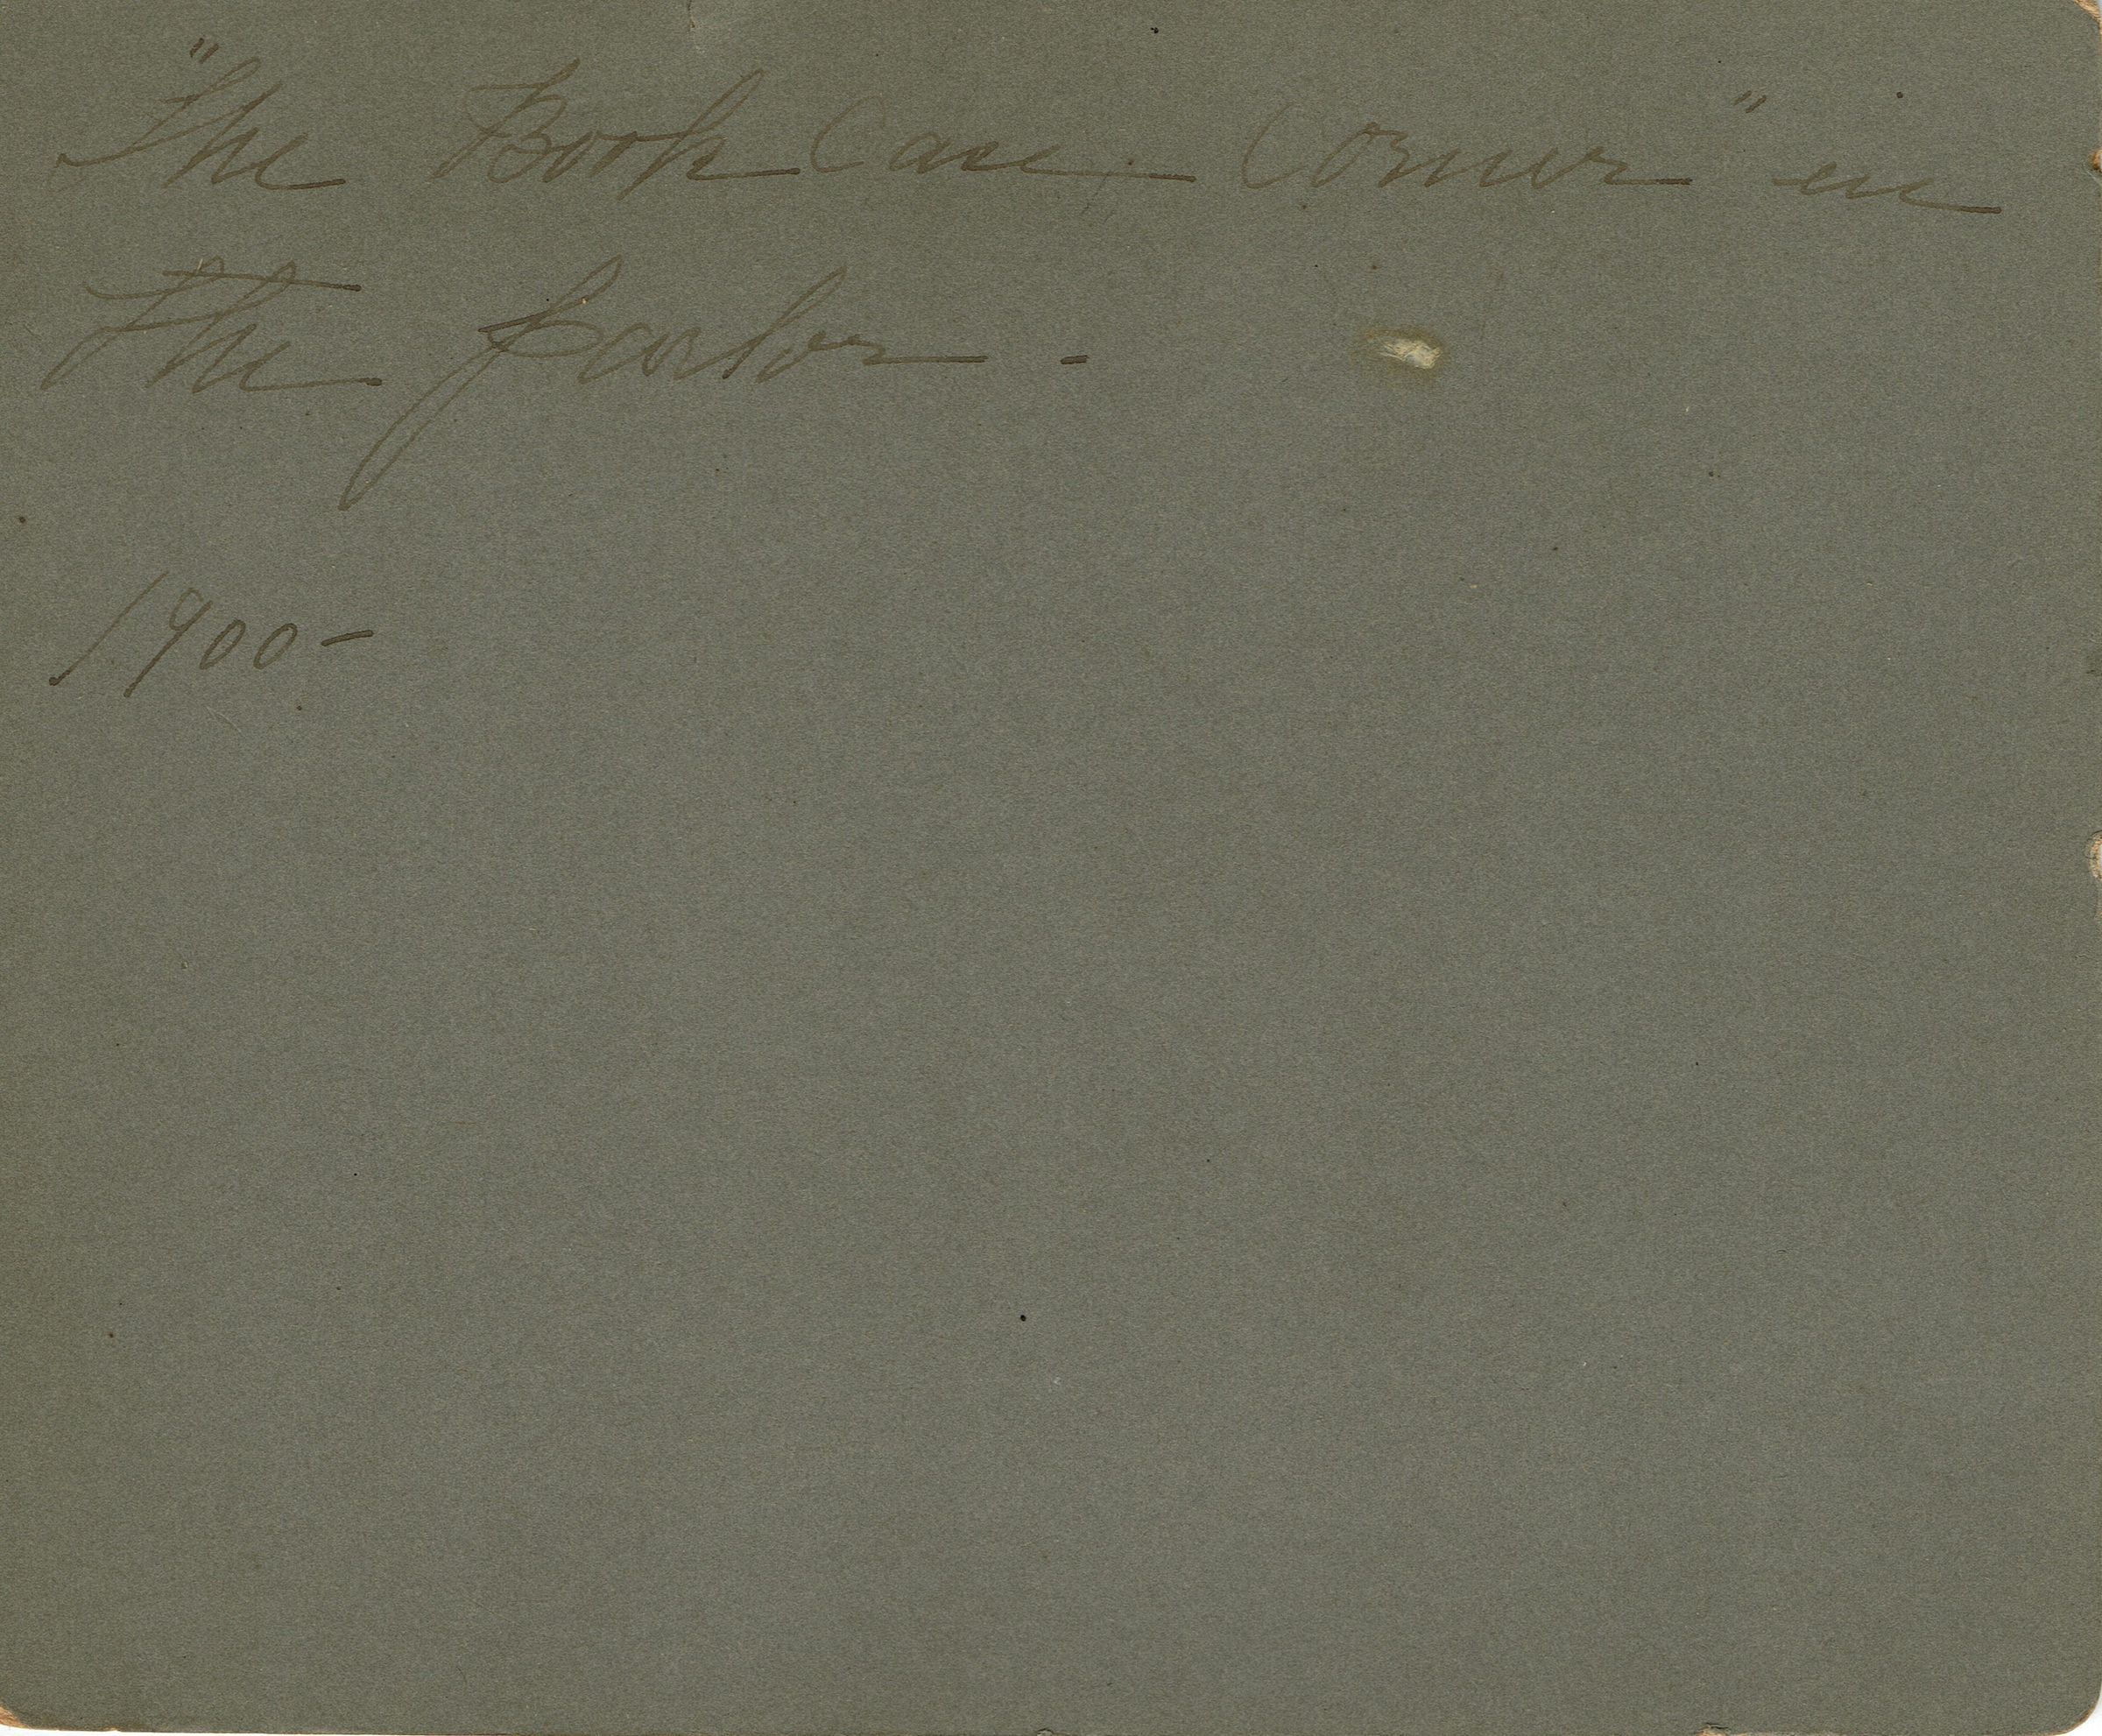 "The Book Case Corner" in
the parlor -
1900-